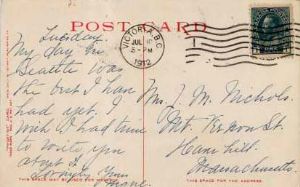 POST CARD
VICTORIA, B.C.
JUL
5 - PM
1912
Tuesday
My day in
Seattle was
the best I have
had yet. I
wish I had time
to write you
about it.
Mrs. J. M. Nichols.
Mt. Vernon St.
Haverhill.
Massachusetts.
THIS SPACE MAY BE USED FOR MESSAGE
THIS SPACE FOR ADDRESS